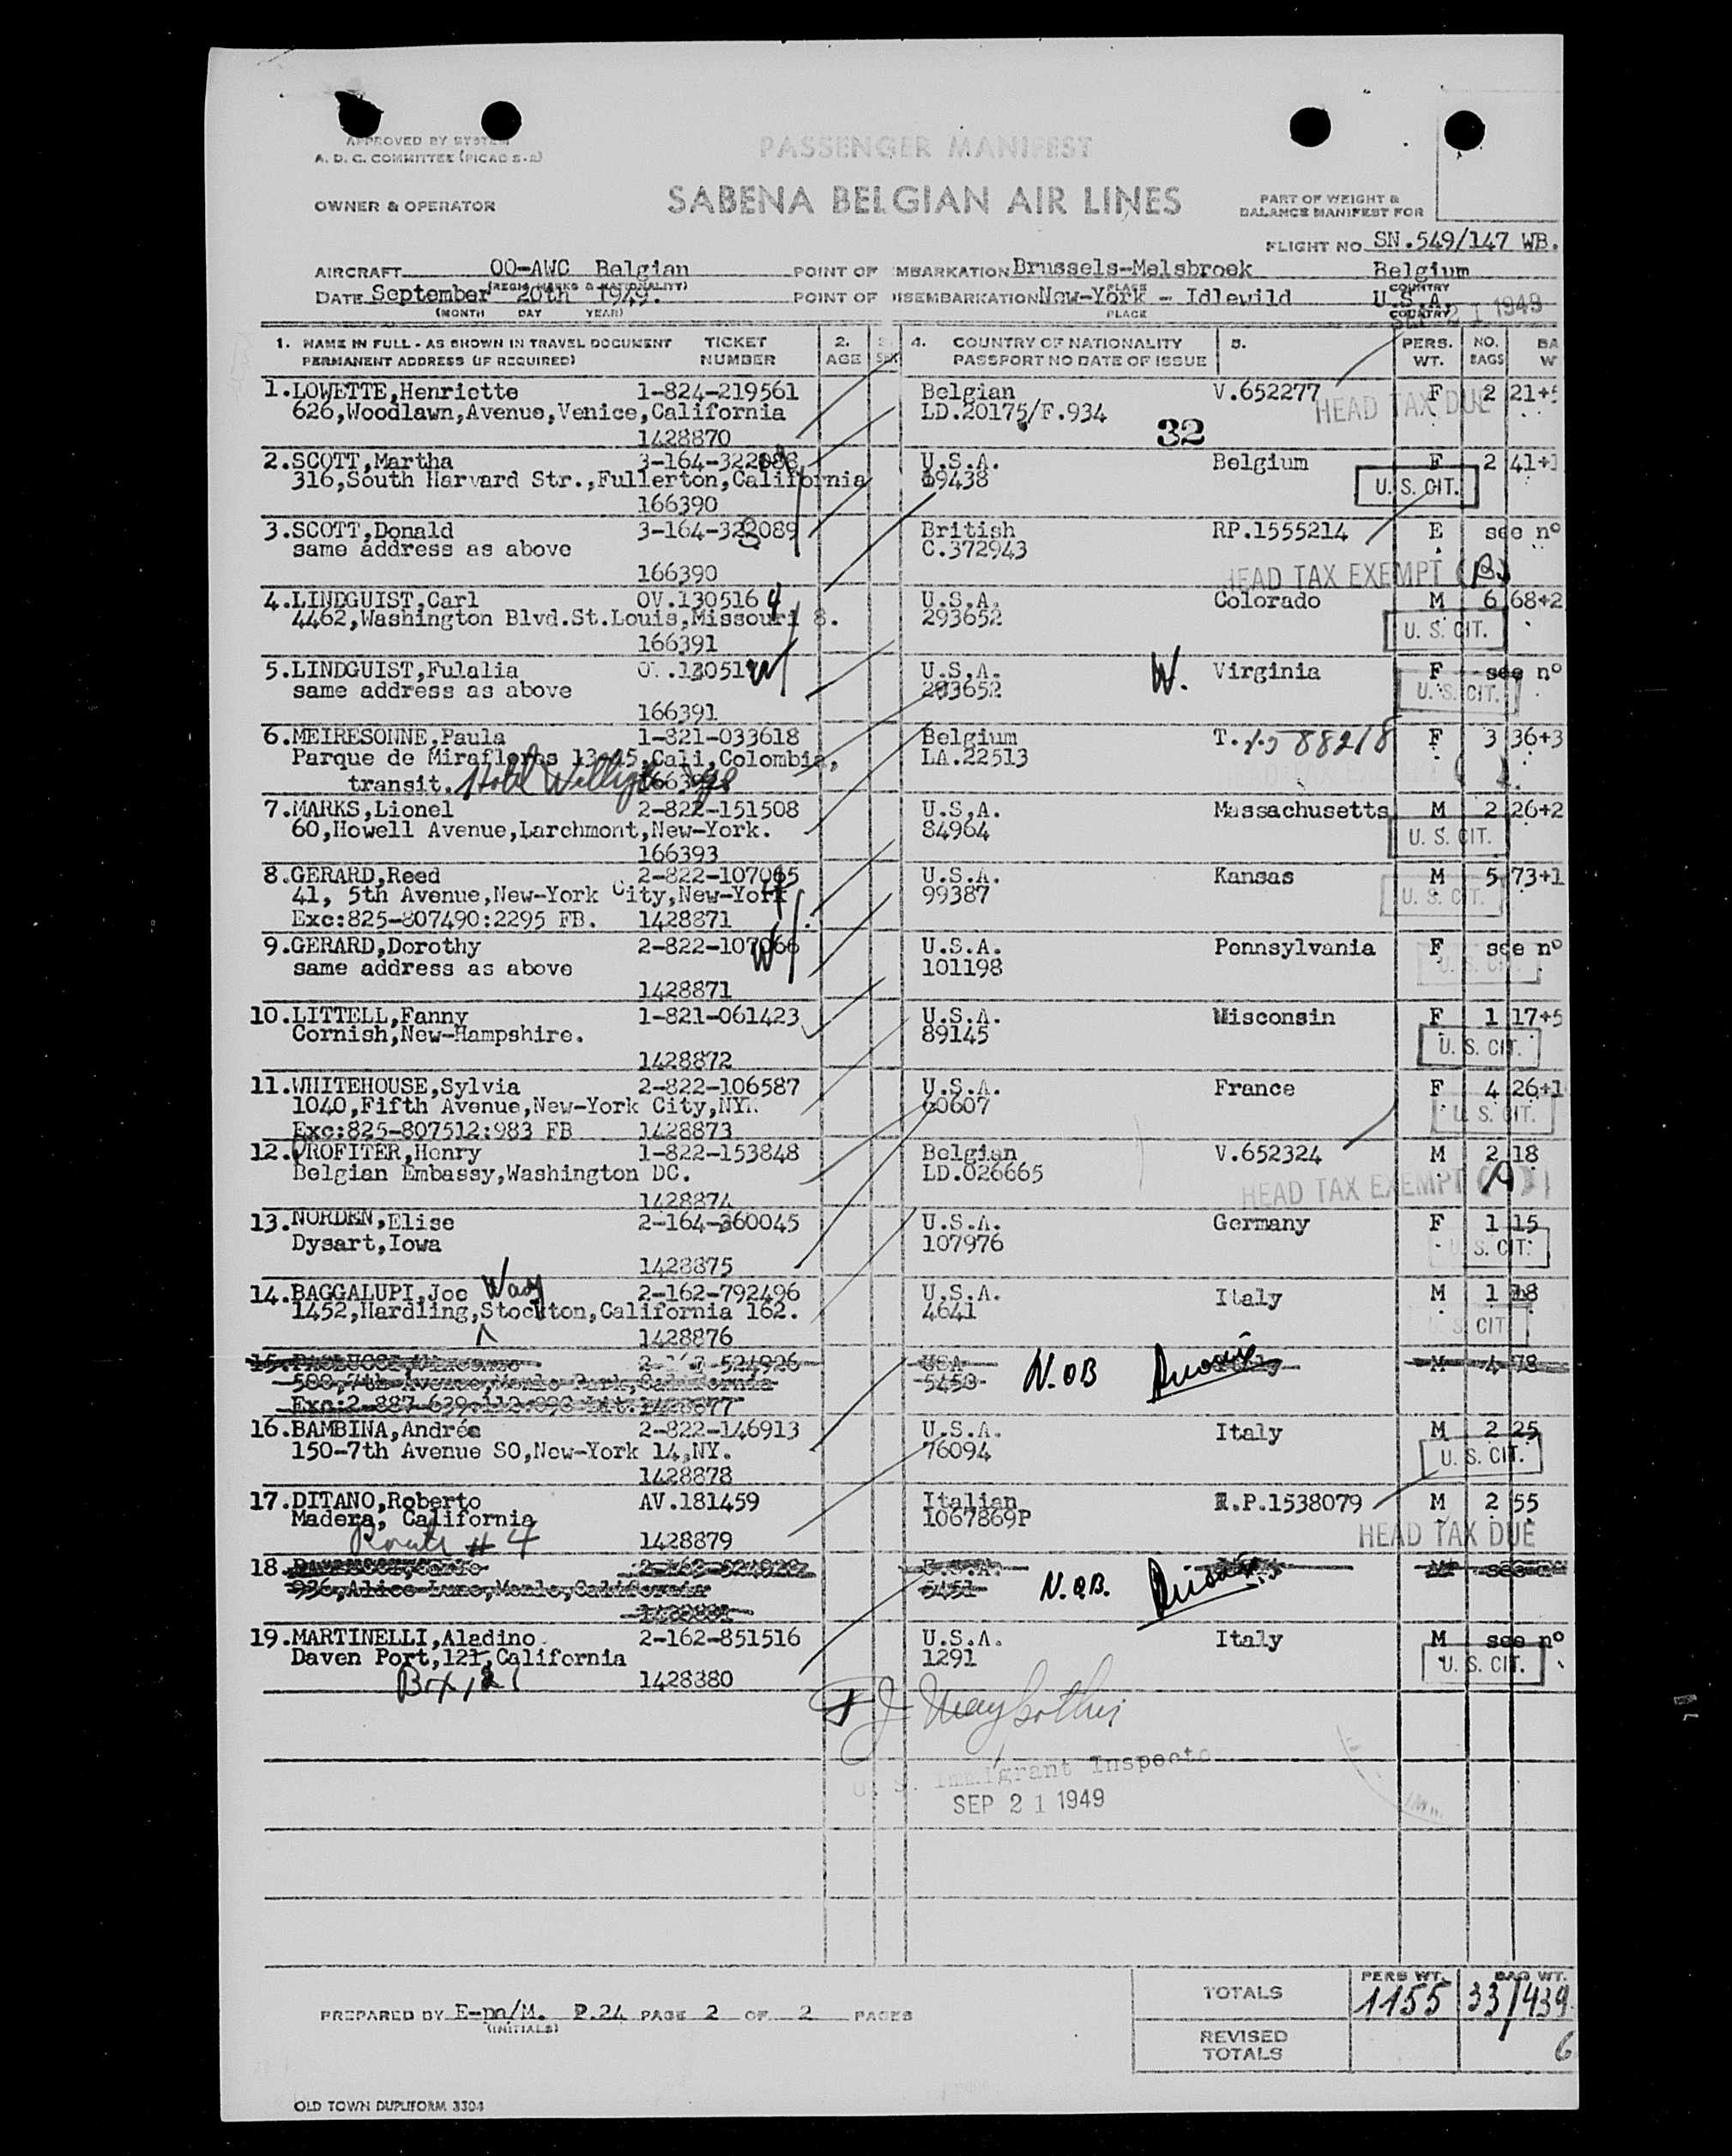 APPROVED BY SYSTEM
A. D. C. COMMITTEE (PICAO S-2)
PASSENGER MANIFEST
OWNER & OPERATOR
SABENA BELGIAN AIR LINES
PART OF WEIGHT &
BALANCE MANIFEST FOR
FLIGHT NO SN.549/147 WB.
AIRCRAFT OO-AWC Belgian POINT OF EMBARKATION Brussels-Melsbroek Belgium
(REGIS MARKS & NATIONALITY) PLACE COUNTRY
DATE September 20th 1949. POINT OF DISEMBARKATION New-York - Idlewild U.S.A.
(MONTH DAY YEAR) PLACE COUNTRY
SEP 21 1949
1. NAME IN FULL - AS SHOWN IN TRAVEL DOCUMENT TICKET 2. 3. 4. COUNTRY OF NATIONALITY 5. PERS. NO. BA
PERMANENT ADDRESS (IF REQUIRED) NUMBER AGE SEX PASSPORT NO DATE OF ISSUE WT. BAGS W
1. LOWETTE,Henriette 1-824-219561 Belgian V.652277 F 2 21+5
626,Woodlawn,Avenue,Venice,California LD.20175/F.934 HEAD TAX DUE
1428870 32
2. SCOTT,Martha 3-164-322088 U.S.A. Belgium F 2 41+1
316,South Harvard Str.,Fullerton,California 19438 U. S. CIT.
166390
3. SCOTT,Donald 3-164-322089 British RP.1555214 E see nº
same address as above C.372943
166390 HEAD TAX EXEMPT (B)
4. LINDGUIST,Carl OV.130516 4 U.S.A. Colorado M 6 68+2
4462,Washington Blvd.St.Louis,Missouri 8. 293652 U. S. CIT.
166391
5. LINDGUIST,Fulalia OV.13051 W U.S.A. W. Virginia F see nº
same address as above 293652 U. S. CIT.
166391
6. MEIRESONNE,Paula 1-821-033618 Belgium T. 1588218 F 3 36+3
Parque de Miraflores 13-45,Cali,Colombia, LA.22513
transit. Hotel
7. MARKS,Lionel 2-822-151508 U.S.A. Massachusetts M 2 26+2
60,Howell Avenue,Larchmont,New-York. 84964 U. S. CIT.
166393
8. GERARD,Reed 2-822-107065 U.S.A. Kansas M 5 73+1
41, 5th Avenue,New-York City,New-York 99387 U. S. CIT.
Exc:825-807490:2295 FB. 1428871
9. GERARD,Dorothy 2-822-107066 U.S.A. Pennsylvania F see nº
same address as above W 101198 U. S. CIT.
1428871
10. LITTELL,Fanny 1-821-061423 U.S.A. Wisconsin F 1 17+5
Cornish,New-Hampshire. 89145 U. S. CIT.
1428872
11. WHITEHOUSE,Sylvia 2-822-106587 U.S.A. France F 4 26+1
1040,Fifth Avenue,New-York City,NY. 60607 U. S. CIT.
Exc:825-807512:983 FB 1428873
12. PROFITER,Henry 1-822-153848 Belgian V.652324 M 2 18
Belgian Embassy,Washington DC. LD.026665 HEAD TAX EXEMPT (A)
1428874
13. NORDEN,Elise 2-164-360045 U.S.A. Germany F 1 15
Dysart,Iowa 107976 U. S. CIT.
1428875
14. BAGGALUPI,Joe Way 2-162-792496 U.S.A. Italy M 1 18
1452,Hardling,Stockton,California 162. 4641 S. CIT
1428876
15. 524926 USA N.OB M 4 78
588,7th Avenue,Menlo Park,California 5450
1428877
16. BAMBINA,Andrée 2-822-146913 U.S.A. Italy M 2 25
150-7th Avenue SO,New-York 14,NY. 76094 U. S. CIT.
1428878
17. DITANO,Roberto AV.181459 Italian R.P.1538079 M 2 55
Madera, California 1067869P HEAD TAX DUE
Route # 4 1428879
18. U.S.A. N.OB.
936,Alice Lane,Menlo,California 5451
19. MARTINELLI,Aladino 2-162-851516 U.S.A. Italy M see nº
Daven Port,121,California 1291 U. S. CIT.
Box 121 1428880
U. S. Immigrant Inspector
SEP 21 1949
TOTALS PERS WT. 1155 BAG WT. 33/439
PREPARED BY E-pn/M. P.24 PAGE 2 OF 2 PAGES
(INITIALS)
REVISED
TOTALS 6
OLD TOWN DUPLIFORM 3304